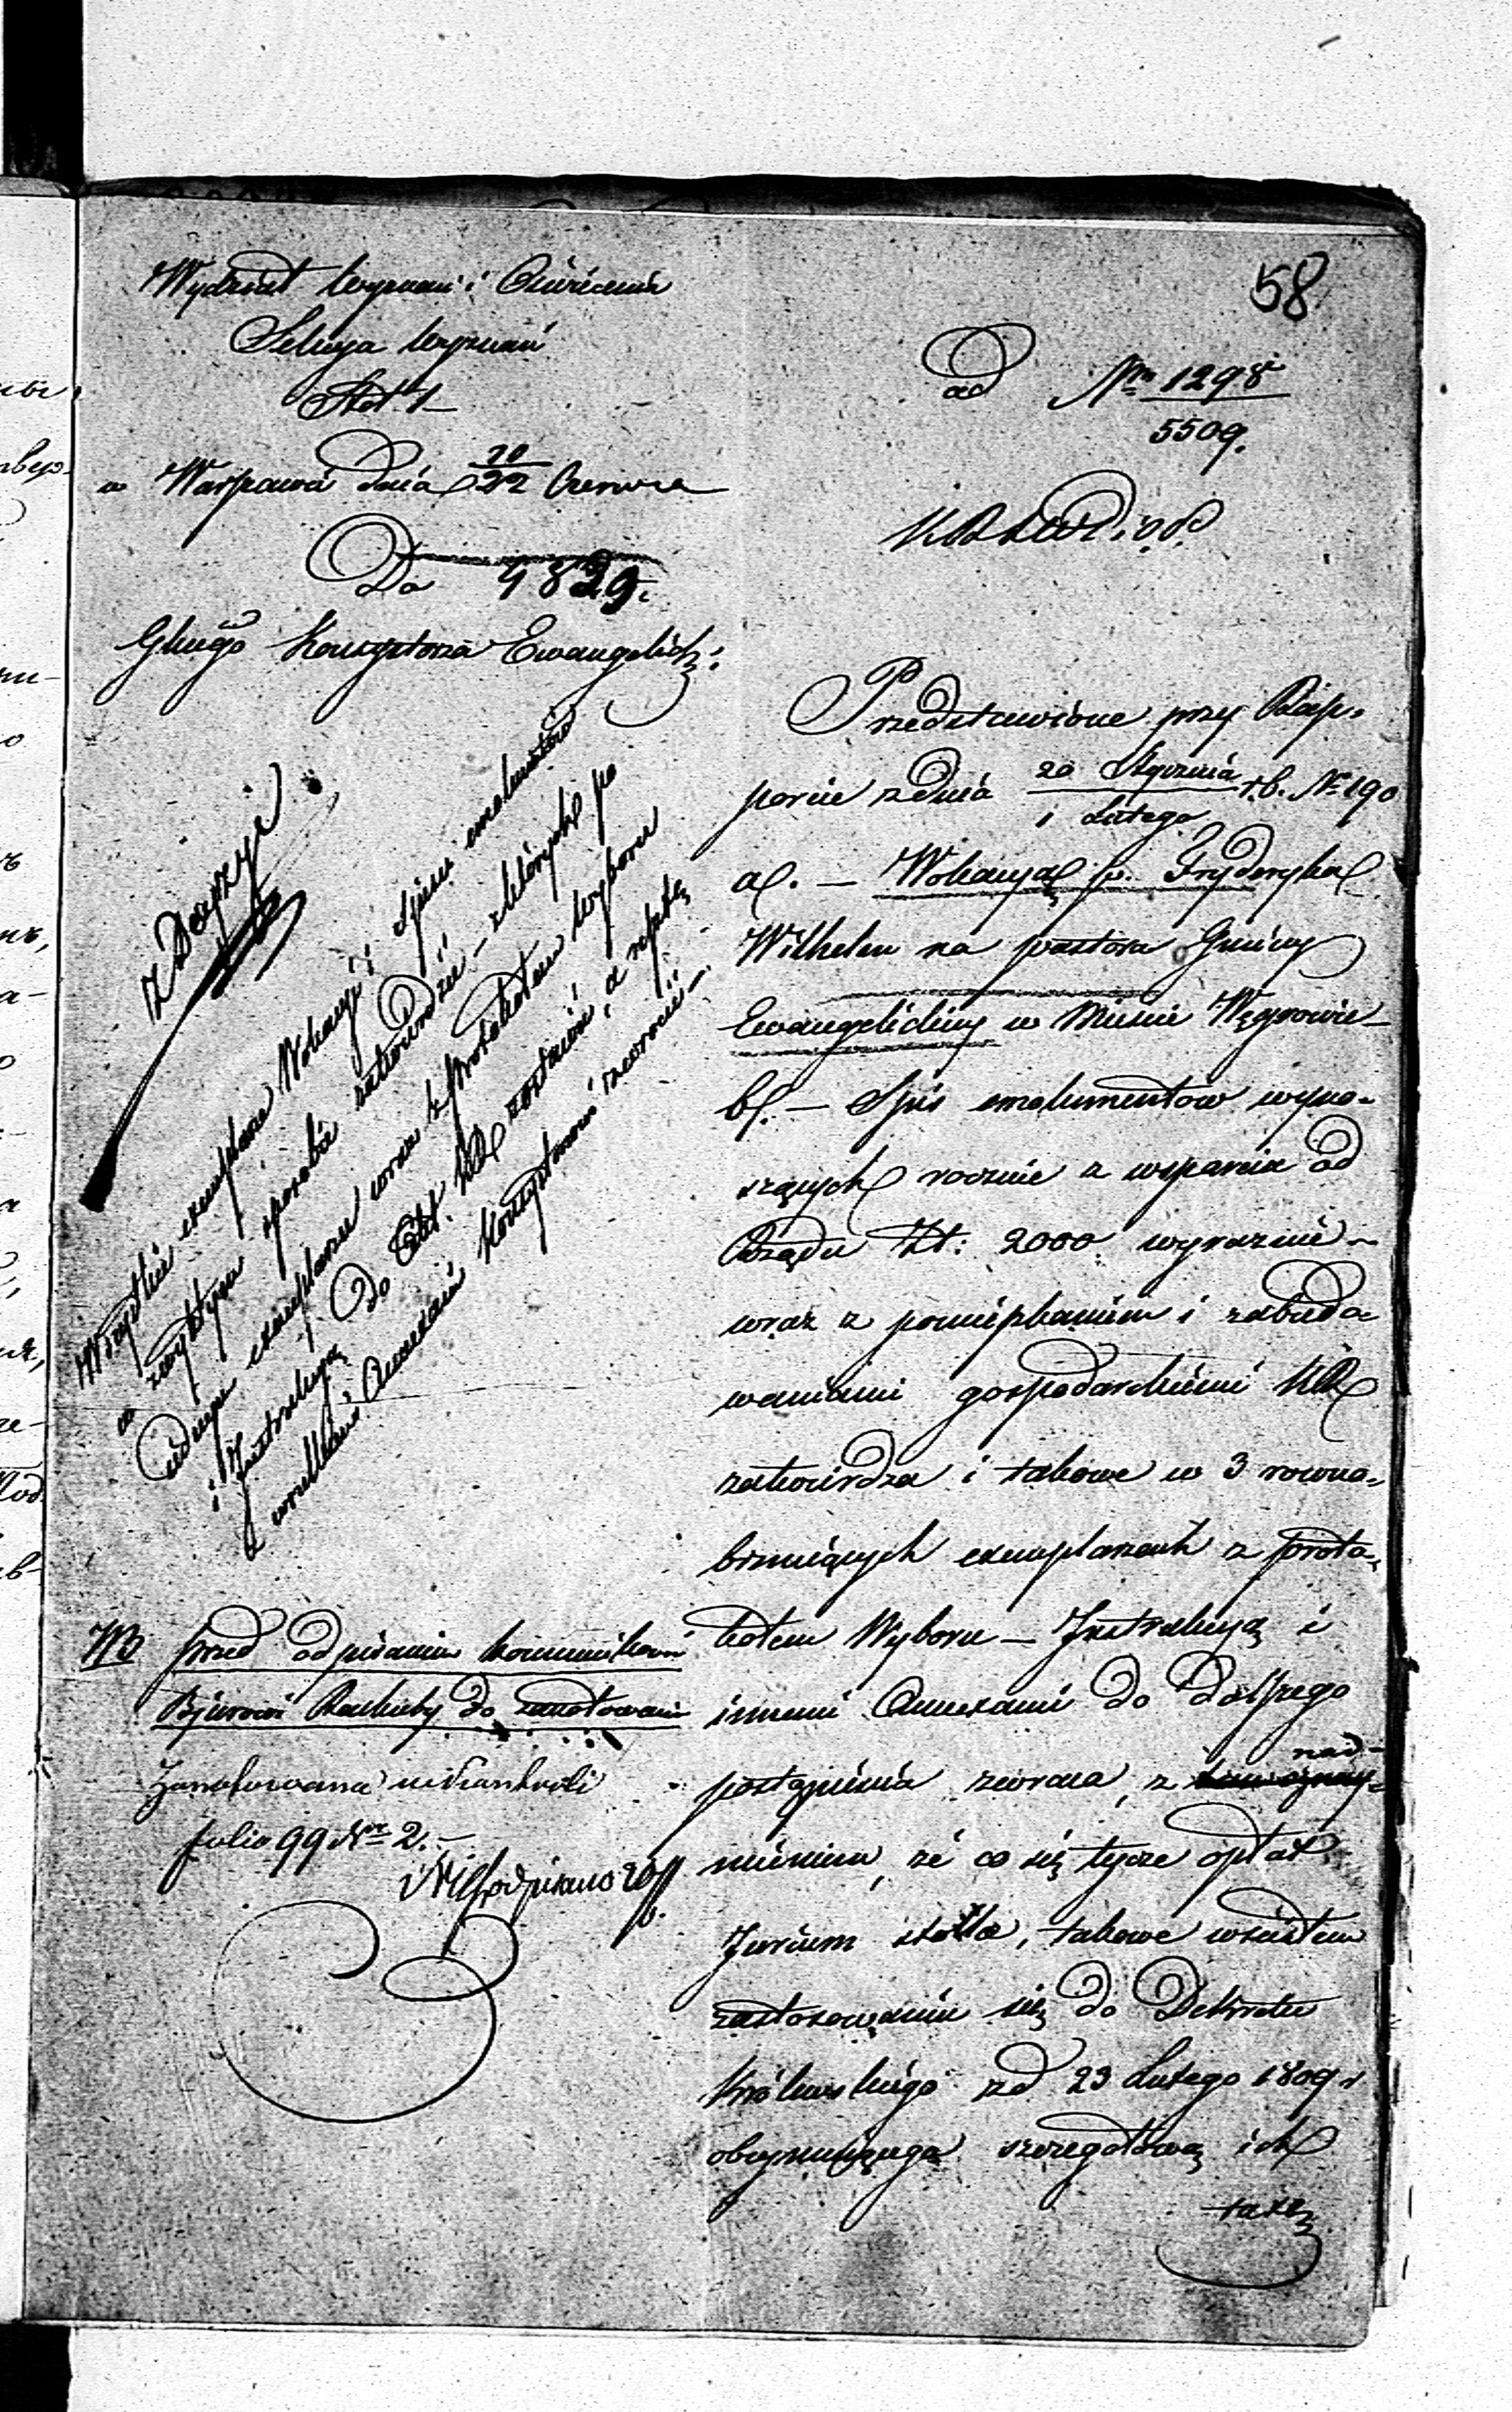 58
Wydział Wyznań i Oświecenia
Sekcya Wyznań
Stół 1
w Warszawie dnia 20/22 Czerwca
1829.
Do
Głnego Konsystorza Ewangelick:
ad Nro 1298
5509.
Przedstawione przy Rap-
porcie z dnia 20 Stycznia / 1 Lutego r.b. No 190
a/. — Wokacyą p. Fryderyka
Wilhelm na pastora Gminy
Ewangelickiey w Mieście Węgrowie —
b/. — Spis emolumentów wyno-
szących rocznie z wsparcia od
Rządu Zł: 2000 wyraźnie —
wraz z pomieszkaniem i zabudo-
waniami gospodarskiemi KR
zatwierdza i takowe w 3 równo-
brzmiących exemplarzach z proto-
kołem Wyboru — Instrukcyą i
innemi Annexami do dalszego
postąpienia zwraca, z nad-
mieniem, że co się tycze opłat
Jurium stolae, takowe winny
zastosowanie się do Dekretu
Królewskiego z d 23 Lutego 1809 r
obeymuiącego szczegółową ich
taxę
z Decyzyi
Wszystkie exemplarze Wokacyi i Spisu emolumentów
w zwykłym sposobie zatwierdzić — z których po
iednym exemplarzu wraz z Protokołem wyboru
i Instrukcyą do Akt. KR zostawić, a resztę
z wszelkiemi Annexami Konsystorzowi zwrócić —
NB przed odpisaniem kommunikować
Bjórowi Rachuby do zanotowania
Zanotowano w Kontroli
folio 99 Nr 2. —